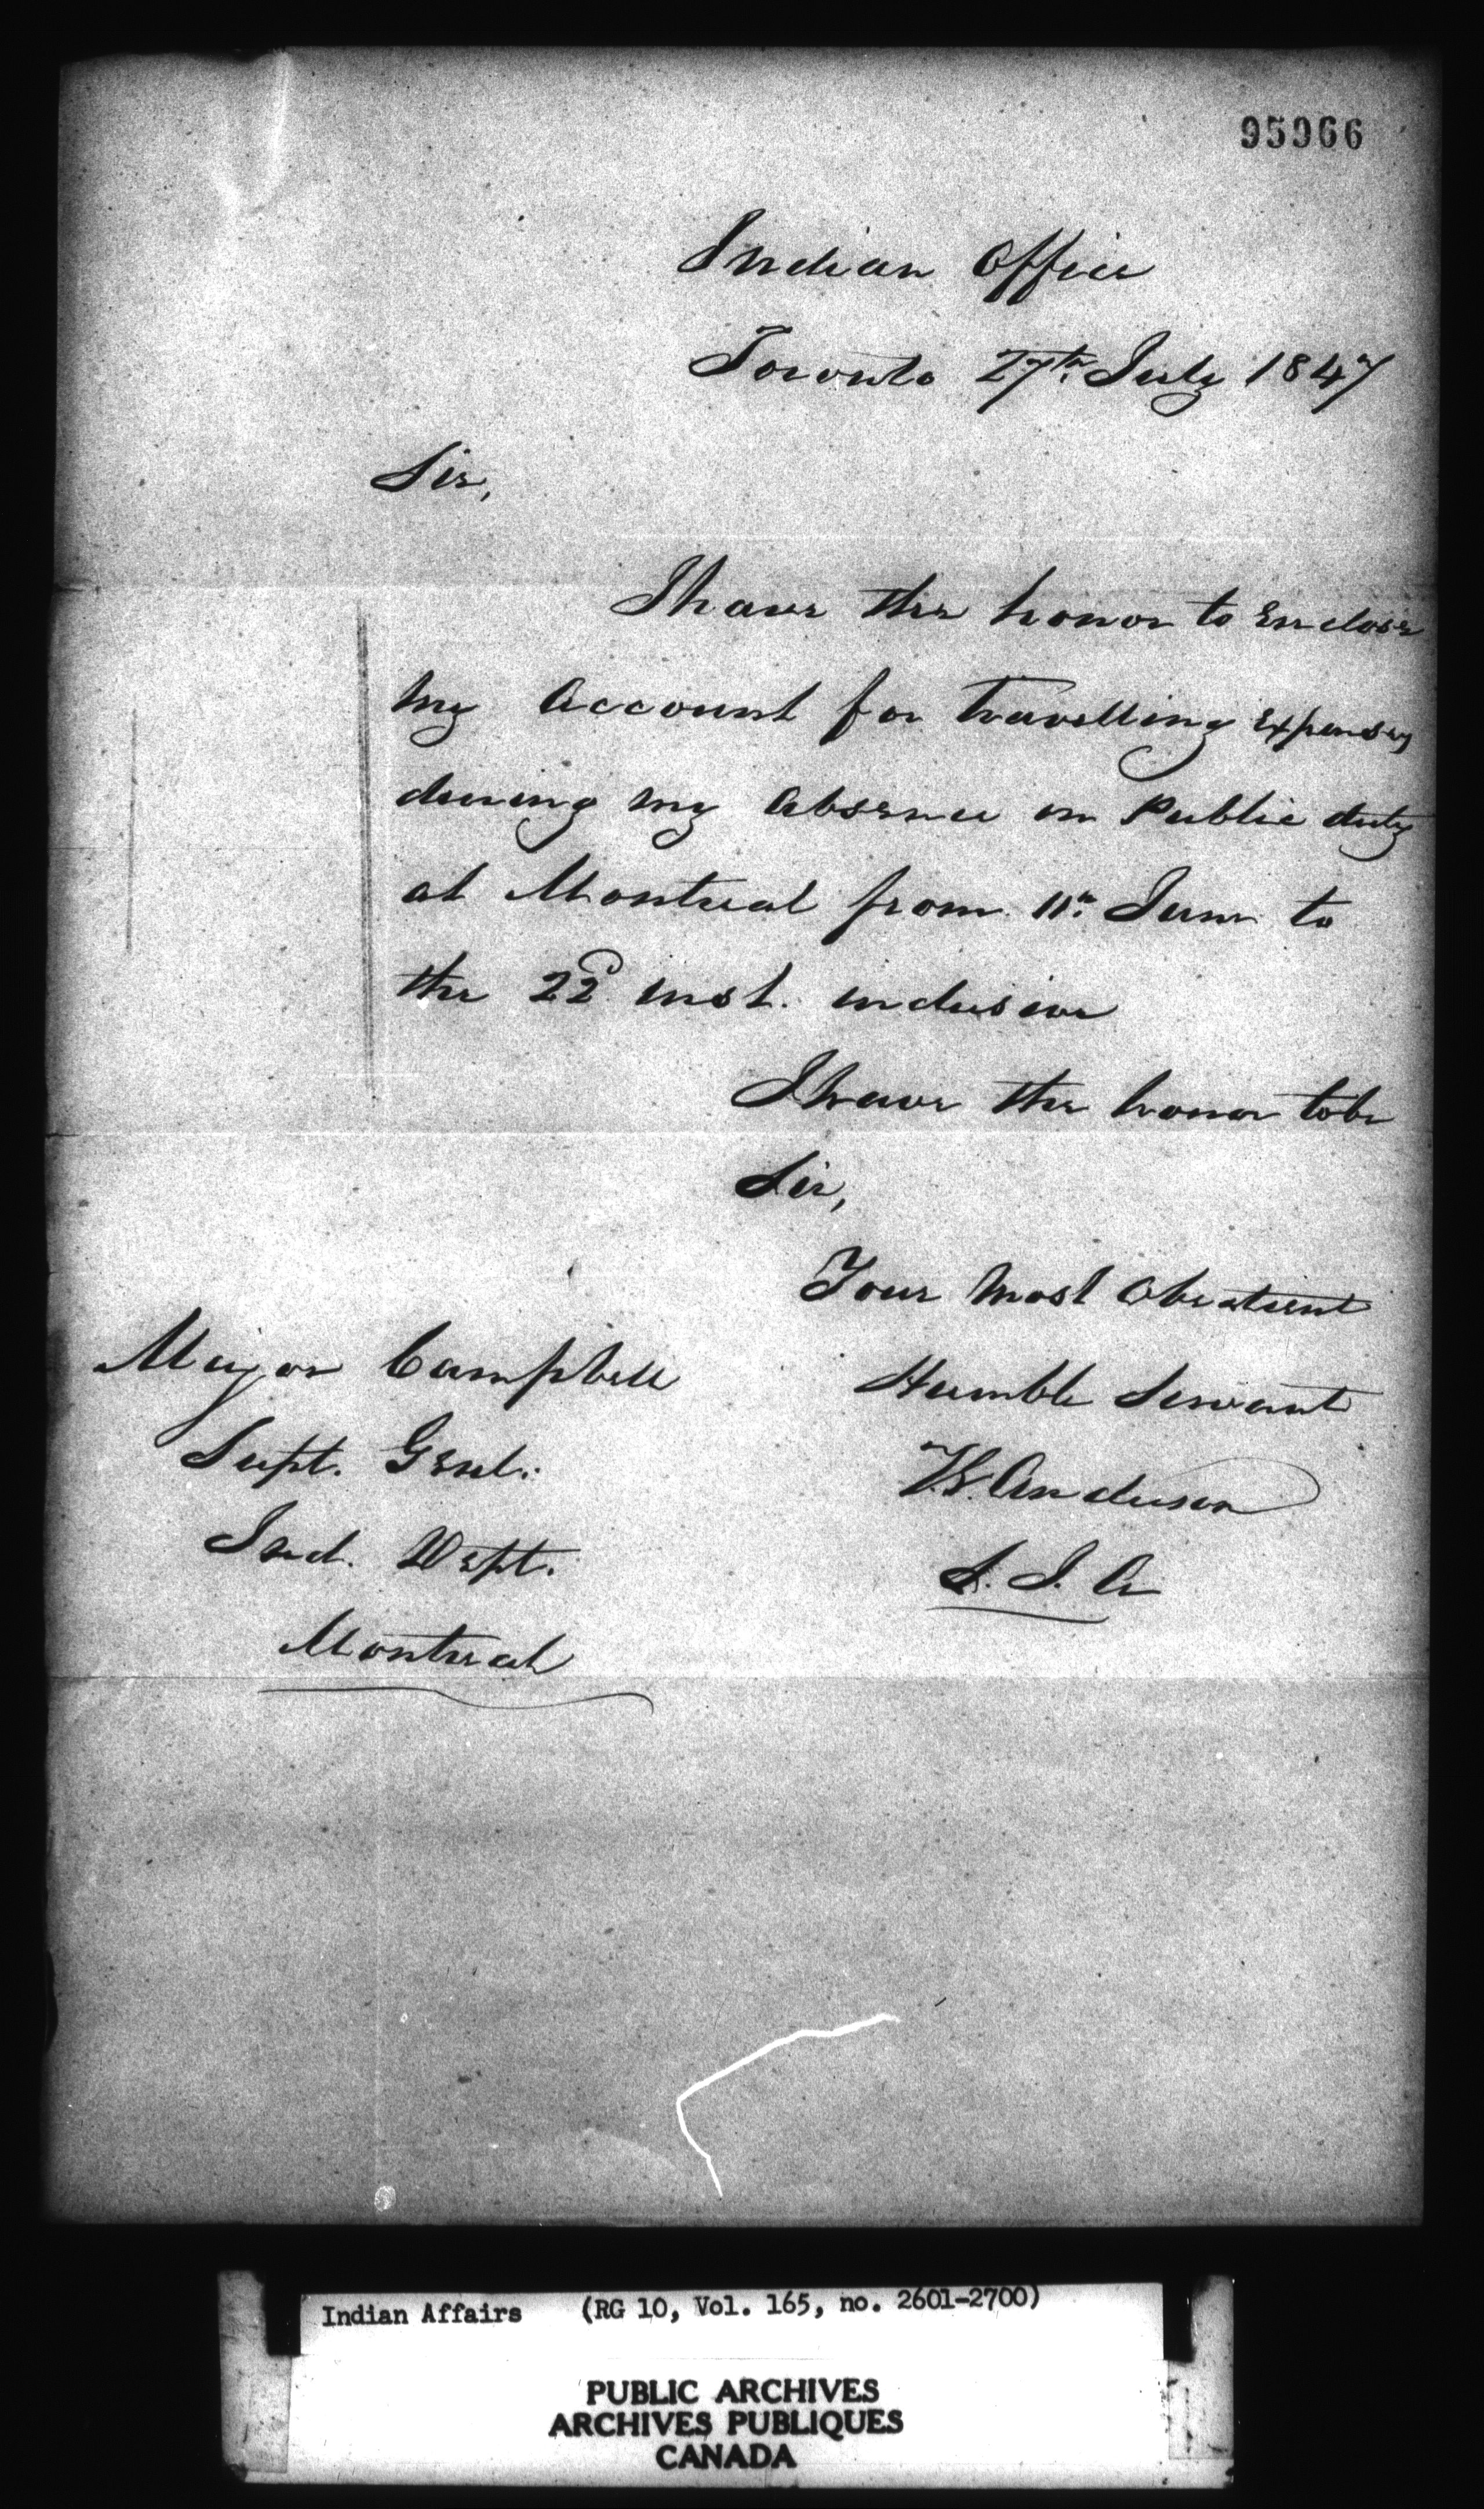 95966
Indian Office
Toronto 27th July 1847
Sir,
I have the honor to Enclose
my Account for Travelling Expenses
during my Absence on Public duty
at Montreal from 11th June to
the 22d inst. inclusive
I have the honor to be
Sir,
Your Most Obedient
Humble Servant
T.G. Anderson
S. I. A
Major Campbell
Supt. Genl.
Ind. Dept.
Montreal
Indian Affairs (RG 10, Vol. 165, no. 2601-2700)
PUBLIC ARCHIVES
ARCHIVES PUBLIQUES
CANADA